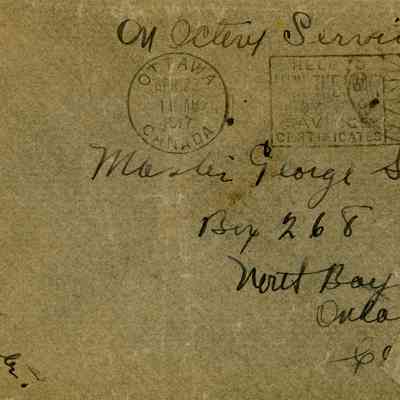 On Active Servi
OTTAWA
APR 22
11 AM
1917
CANADA
HELP TO
WIN THE WAR
BUY
SAVINGS
CERTIFICATES
Master George S
Box 268
North Bay
Onta